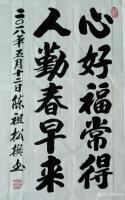 心好福常得
人勤春早来
二〇一八年五月十二日陈祖松撰书